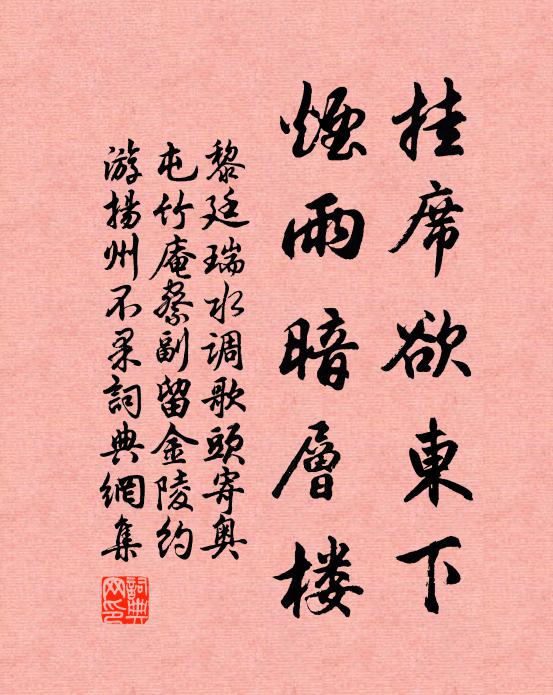 挂席欲東下
煙雨暗層楼
黎廷瑞水调歌頭寄奥
屯竹庵察副留金陵约
游揚州不果詞典網集
詞典
网印